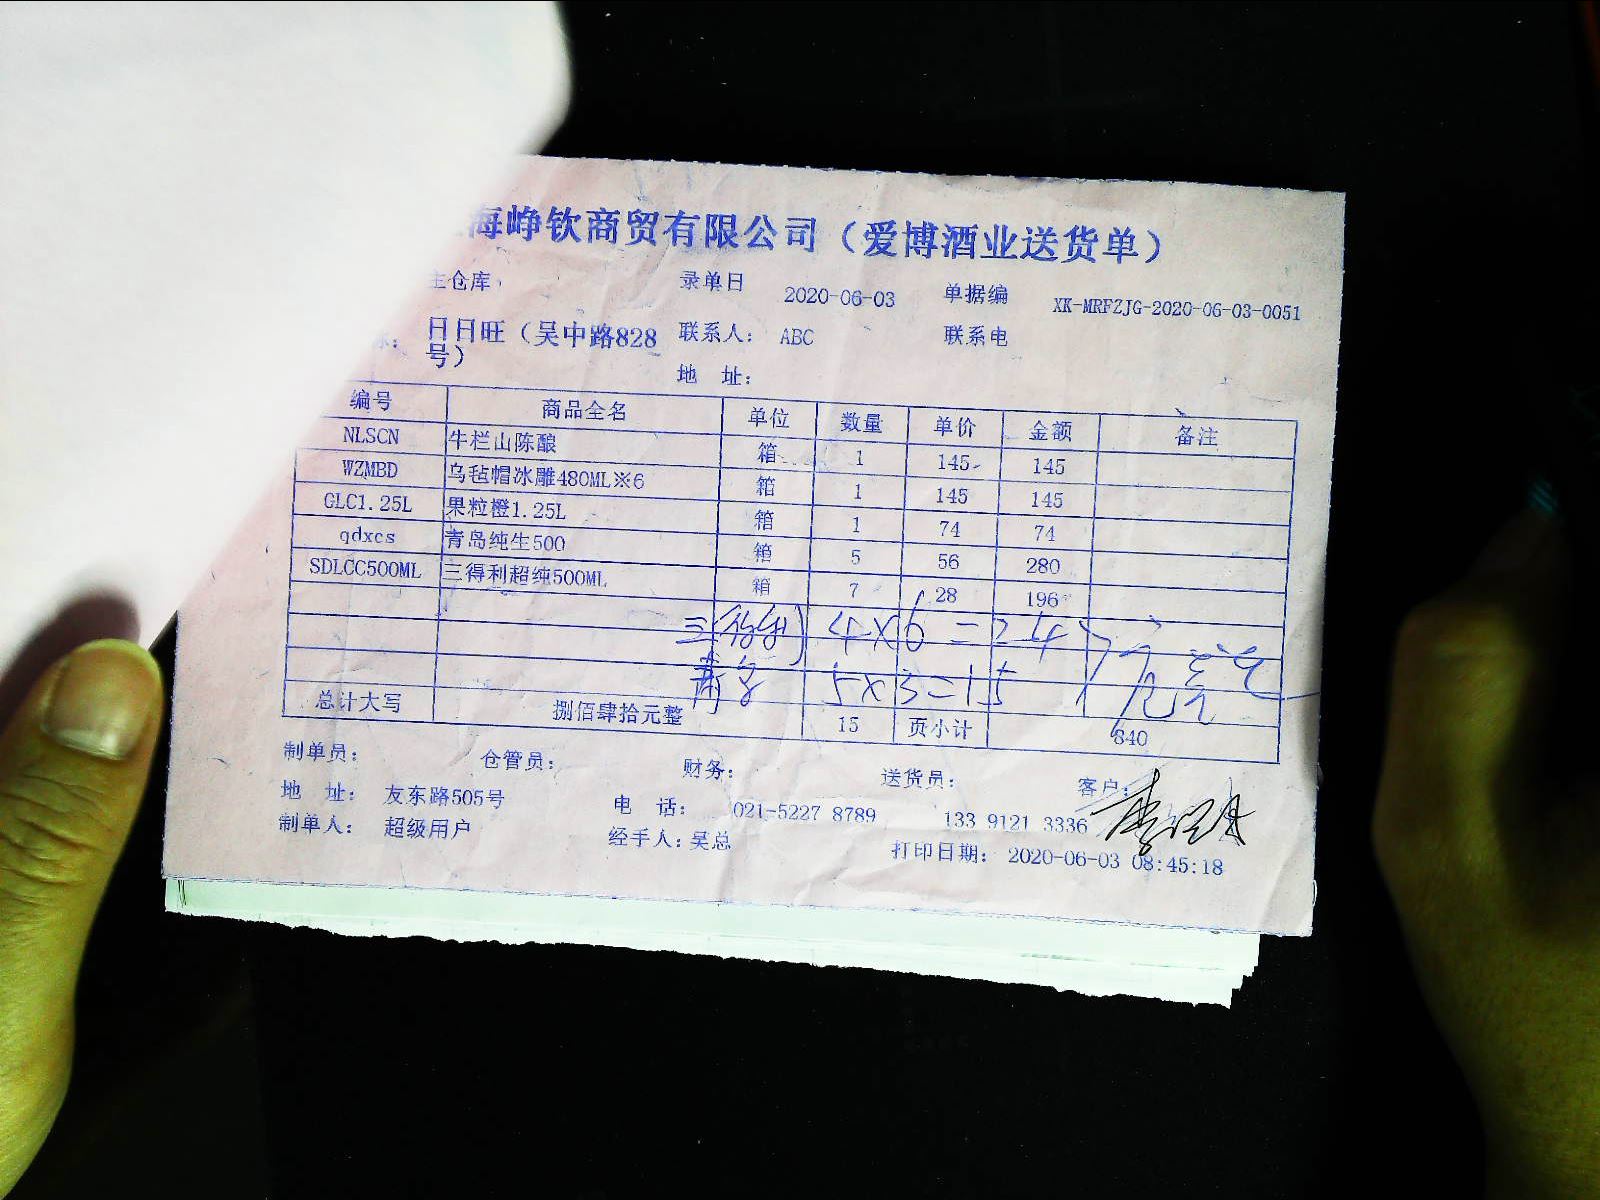 海峥钦商贸有限公司（爱博酒业送货单）
主仓库： 录单日 2020-06-03 单据编 XK-MRFZJG-2020-06-03-0051
日日旺（吴中路828号） 联系人： ABC 联系电
地 址：
编号 商品全名 单位 数量 单价 金额 备注
NLSCN 牛栏山陈酿 箱 1 145 145
WZMBD 乌毡帽冰雕480ML※6 箱 1 145 145
GLC1.25L 果粒橙1.25L 箱 1 74 74
qdxcs 青岛纯生500 箱 5 56 280
SDLCC500ML 三得利超纯500ML 箱 7 28 196
4×6=24
青岛 5×3=15
总计大写 捌佰肆拾元整 15 页小计 840
制单员： 仓管员： 财务： 送货员： 客户：
地 址： 友东路505号 电 话： 021-5227 8789 133 9121 3336
制单人： 超级用户 经手人：吴总 打印日期： 2020-06-03 08:45:18